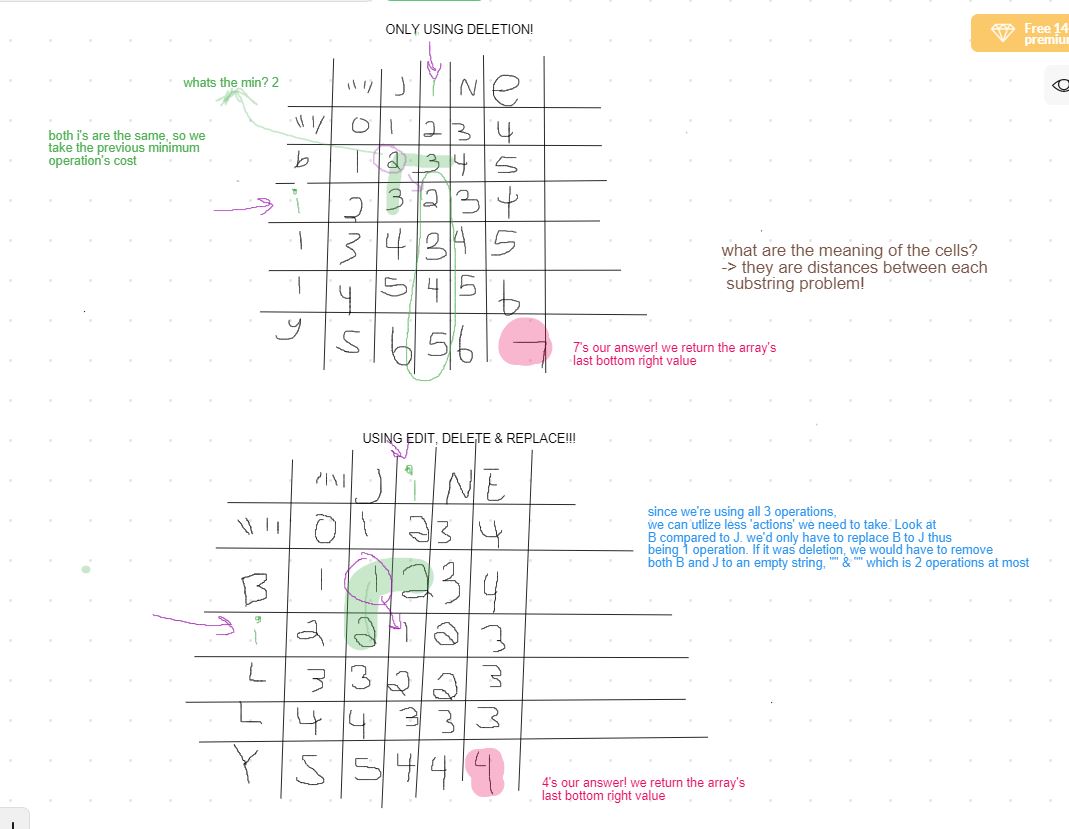 ONLY USING DELETION!
Free 14
premiu
whats the min? 2
"" J i N e
both i's are the same, so we
take the previous minimum
operation's cost
"" 0 1 2 3 4
b 1 2 3 4 5
i 2 3 2 3 4
l 3 4 3 4 5
l 4 5 4 5 6
y 5 6 5 6 7
what are the meaning of the cells?
-> they are distances between each
substring problem!
7's our answer! we return the array's
last bottom right value
USING EDIT, DELETE & REPLACE!!!
"" J i N E
"" 0 1 2 3 4
B 1 1 2 3 4
i 2 2 1 2 3
L 3 3 2 2 3
L 4 4 3 3 3
Y 5 5 4 4 4
since we're using all 3 operations,
we can utlize less 'actions' we need to take. Look at
B compared to J. we'd only have to replace B to J thus
being 1 operation. If it was deletion, we would have to remove
both B and J to an empty string, "" & "" which is 2 operations at most
4's our answer! we return the array's
last bottom right value